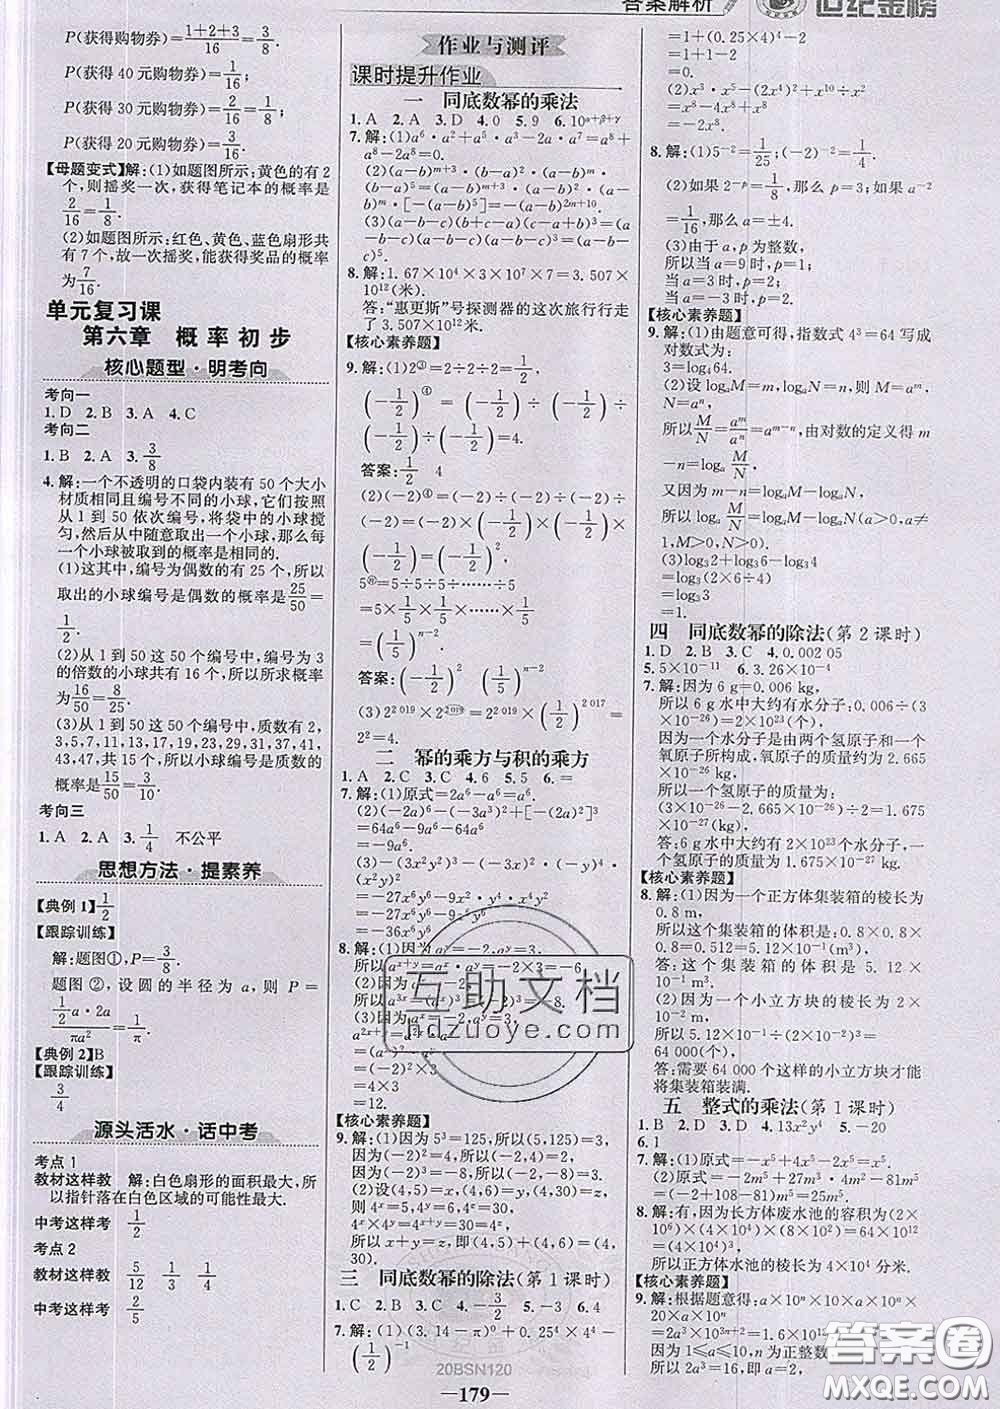 答案解析
世纪金榜
P(获得购物券)=\frac{1+2+3}{16}=\frac{3}{8}.
P(获得 40 元购物券)=\frac{1}{16};
P(获得 30 元购物券)=\frac{2}{16}=\frac{1}{8};
P(获得 20 元购物券)=\frac{3}{16}.
【母题变式】解:(1)如题图所示:黄色的有 2
个,则摇奖一次,获得笔记本的概率是
\frac{2}{16}=\frac{1}{8}.
(2)如题图所示:红色、黄色、蓝色扇形共
有 7 个,故一次摇奖,能获得奖品的概率
为\frac{7}{16}.
单元复习课
第六章 概率初步
核心题型·明考向
考向一
1. D 2. B 3. A 4. C
考向二
1. B 2. A 3. \frac{3}{8}
4. 解:一个不透明的口袋内装有 50 个大小
材质相同且编号不同的小球,它们按照
从 1 到 50 依次编号,将袋中的小球搅
匀,然后从中随意取出一个小球,那么每
一个小球被取到的概率是相同的.
(1)这其中,编号为偶数的有 25 个,所以
取出的小球编号是偶数的概率是\frac{25}{50}=
\frac{1}{2}.
(2)从 1 到 50 这 50 个编号中,编号为 3
的倍数的小球共有 16 个,所以所求概率
为\frac{16}{50}=\frac{8}{25}.
(3)从 1 到 50 这 50 个编号中,质数有 2,
3,5,7,11,13,17,19,23,29,31,37,41,
43,47,共 15 个,所以小球编号是质数的
概率是\frac{15}{50}=\frac{3}{10}.
考向三
1. A 2. A 3. \frac{1}{4} 不公平
思想方法·提素养
【典例 1】\frac{1}{2}
【跟踪训练】
解:题图①,P=\frac{3}{8}.
题图 ②,设圆的半径为 a,则 P=
\frac{\frac{1}{2}a·2a}{πa²}=\frac{1}{π}.
【典例 2】B
【跟踪训练】
\frac{3}{4}
源头活水·话中考
考点 1
教材这样教 解:白色扇形的面积最大,所
以指针落在白色区域的可能性最大.
中考这样考 \frac{1}{2}
考点 2
教材这样教 \frac{5}{12} \frac{1}{3} \frac{1}{4}
中考这样考 \frac{2}{5}
作业与测评
课时提升作业
一 同底数幂的乘法
1. A 2. A 3. D 4. 0 5. 9 6. 10^{α+β+γ}
7. 解:(1)a⁶·a²+a⁵·a³-2a·a⁷=a⁸+
a⁸-2a⁸=0.
(2)(a-b)^{m+3}·(b-a)²·(a-b)^m·
(b-a)⁵=(a-b)^{m+3}·(a-b)²·(a-b)
^m·[-(a-b)⁵]=-(a-b)^{2m+10}.
(3)(a-b-c)(b+c-a)(c-a+b)³=
(a-b-c)(a-b-c)(a-b-c)³=(a-
b-c)⁵.
8. 解:1.67×10⁴×3×10⁷×7=3.507×
10¹²(米).
答:“惠更斯”号探测器的这次旅行行走
了 3.507×10¹²米.
【核心素养题】
9. 解:(1)2^③=2÷2÷2=\frac{1}{2},
(-\frac{1}{2})^④=(-\frac{1}{2})÷(-\frac{1}{2})÷
(-\frac{1}{2})÷(-\frac{1}{2})=4.
答案:\frac{1}{2} 4
(2)(-2)^④=(-2)÷(-2)÷(-2)÷
(-2)=(-2)×(-\frac{1}{2})×(-\frac{1}{2})×
(-\frac{1}{2})=(-\frac{1}{2})².
5^ⓝ=5÷5÷5÷……÷5
=5×\frac{1}{5}×\frac{1}{5}×……×\frac{1}{5}
=(\frac{1}{5})^{n-2}
答案:(-\frac{1}{2})² (\frac{1}{5})^{n-2}
(3)2^{2 019}×2^{(2 019)}=2^{2 019}×(\frac{1}{2})^{2 017}=
2²=4.
二 幂的乘方与积的乘方
1. A 2. C 3. C 4. 6 5. 5 6. =
7. 解:(1)原式=2a⁶-a⁶=a⁶.
(2)(-2a²)³-(-3a³)²+[-(2a)²]³=
64a⁶-9a⁶-64a⁶
=-9a⁶.
(3)-(3x²y²)³-(-3x)²·(-y²)³·
(-x²)²
=-27x⁶y⁶-9x²·y⁶·x⁴
=-27x⁶y⁶-9x⁶y⁶
=-36x⁶y⁶.
8. 解:(1)因为a^x=-2,a^y=3,
所以a^{x+y}=a^x·a^y=-2×3=-6.
(2)因为a^x=-2,a^y=3,
所以a^{3x}=(a^x)³=(-2)³=-8.
(3)因为a^x=-2,a^y=3,
=(-2)²×3
=4×3
=12.
【核心素养题】
9. 解:(1)因为 5³=125,所以(5,125)=3,
因为(-2)²=4,所以(-2,4)=2,
因为(-2)³=-8,所以(-2,-8)=3.
(2)设(4,5)=x,(4,6)=y,(4,30)=z,
则 4^x=5,4^y=6,4^z=30,
4^x×4^y=4^{x+y}=30,
所以 x+y=z,即(4,5)+(4,6)=(4,
30).
三 同底数幂的除法(第 1 课时)
1. C 2. C 3. B 4. -\frac{3}{2} 5. -3 6. 4
7. 解:(1)(3.14-π)⁰+0.25⁴×4⁴-
(\frac{1}{2})^{-1}
=1+(0.25×4)⁴-2
=0.
(2)x³·x⁵-(2x⁴)²+x^{10}÷x²
=x⁸-4x⁸+x⁸
=-2x⁸.
8. 解:(1)5^{-2}=\frac{1}{25};(-2)^{-2}=\frac{1}{4}.
(2)如果 2^{-p}=\frac{1}{8},那么 p=3;如果 a^{-2}
=\frac{1}{16},那么 a=±4.
(3)由于 a,p 为整数,
所以当 a=9 时,p=1;
当 a=3 时,p=2;
当 a=-3 时,p=2.
【核心素养题】
9. 解:(1)由题意可得,指数式 4³=64 写成
对数式为:
3=log₄64.
(2)设 logₐM=m,logₐN=n,则 M=a^m.
所以\frac{M}{N}=\frac{a^m}{a^n}=a^{m-n},由对数的定义得 m
-n=logₐ\frac{M}{N}.
又因为 m-n=logₐM-logₐN,
所以 logₐ\frac{M}{N}=logₐM-logₐN(a>0,a≠
1,M>0,N>0).
(3)log₃2+log₃6-log₃4
=log₃(2×6÷4)
=log₃3
=1.
四 同底数幂的除法(第 2 课时)
1. D 2. B 3. C 4. 0.002 05
5. 5×10^{-11} 6. 3.26×10^{-4}
7. 解:因为 6 g=0.006 kg,
所以 6 g 水中大约有水分子:0.006÷(3
×10^{-26})=2×10^{23}(个).
因为一个水分子是由两个氢原子和一个
氧原子所构成,氧原子的质量约为 2.665
×10^{-26} kg,
所以一个氢原子的质量为:
(3×10^{-26}-2.665×10^{-26})÷2=1.675
×10^{-27}(kg).
答:6 g 水中大约有 2×10^{23}个水分子,一
个氢原子的质量为 1.675×10^{-27} kg.
【核心素养题】
8. 解:(1)因为一个正方体集装箱的棱长为
0.8 m,
所以这个集装箱的体积是:0.8×0.8×
0.8=0.512=5.12×10^{-1}(m³).
答:这个集装箱的体积是 5.12×
10^{-1} m³.
(2)因为一个小立方块的棱长为 2×
10^{-2} m,
所以 5.12×10^{-1}÷(2×10^{-2})³=
64 000(个).
答:需要 64 000 个这样的小立方块才能
将集装箱装满.
五 整式的乘法(第 1 课时)
1. B 2. D 3. D 4. 13x²y 5. -20
6. 1
7. 解:(1)原式=-10x⁴y⁴z.
(2)原式=-2m⁵+27m⁵=25m⁵.
8. 解:有,因为长方体废水池的容积为(2×
10⁶)×(4×10⁴)×(8×10²)=64×10^{12}=
(4×10⁴)³,
所以正方体水池的棱长为 4×10⁴ 分米.
【核心素养题】
9. 解:根据题意得:a×10^n×10×a×10^n×
所以 2a³=16,即 a³=8,
互助文档
hdzuoye.com
答案圈
MXQE.COM
20BSN120
—179—